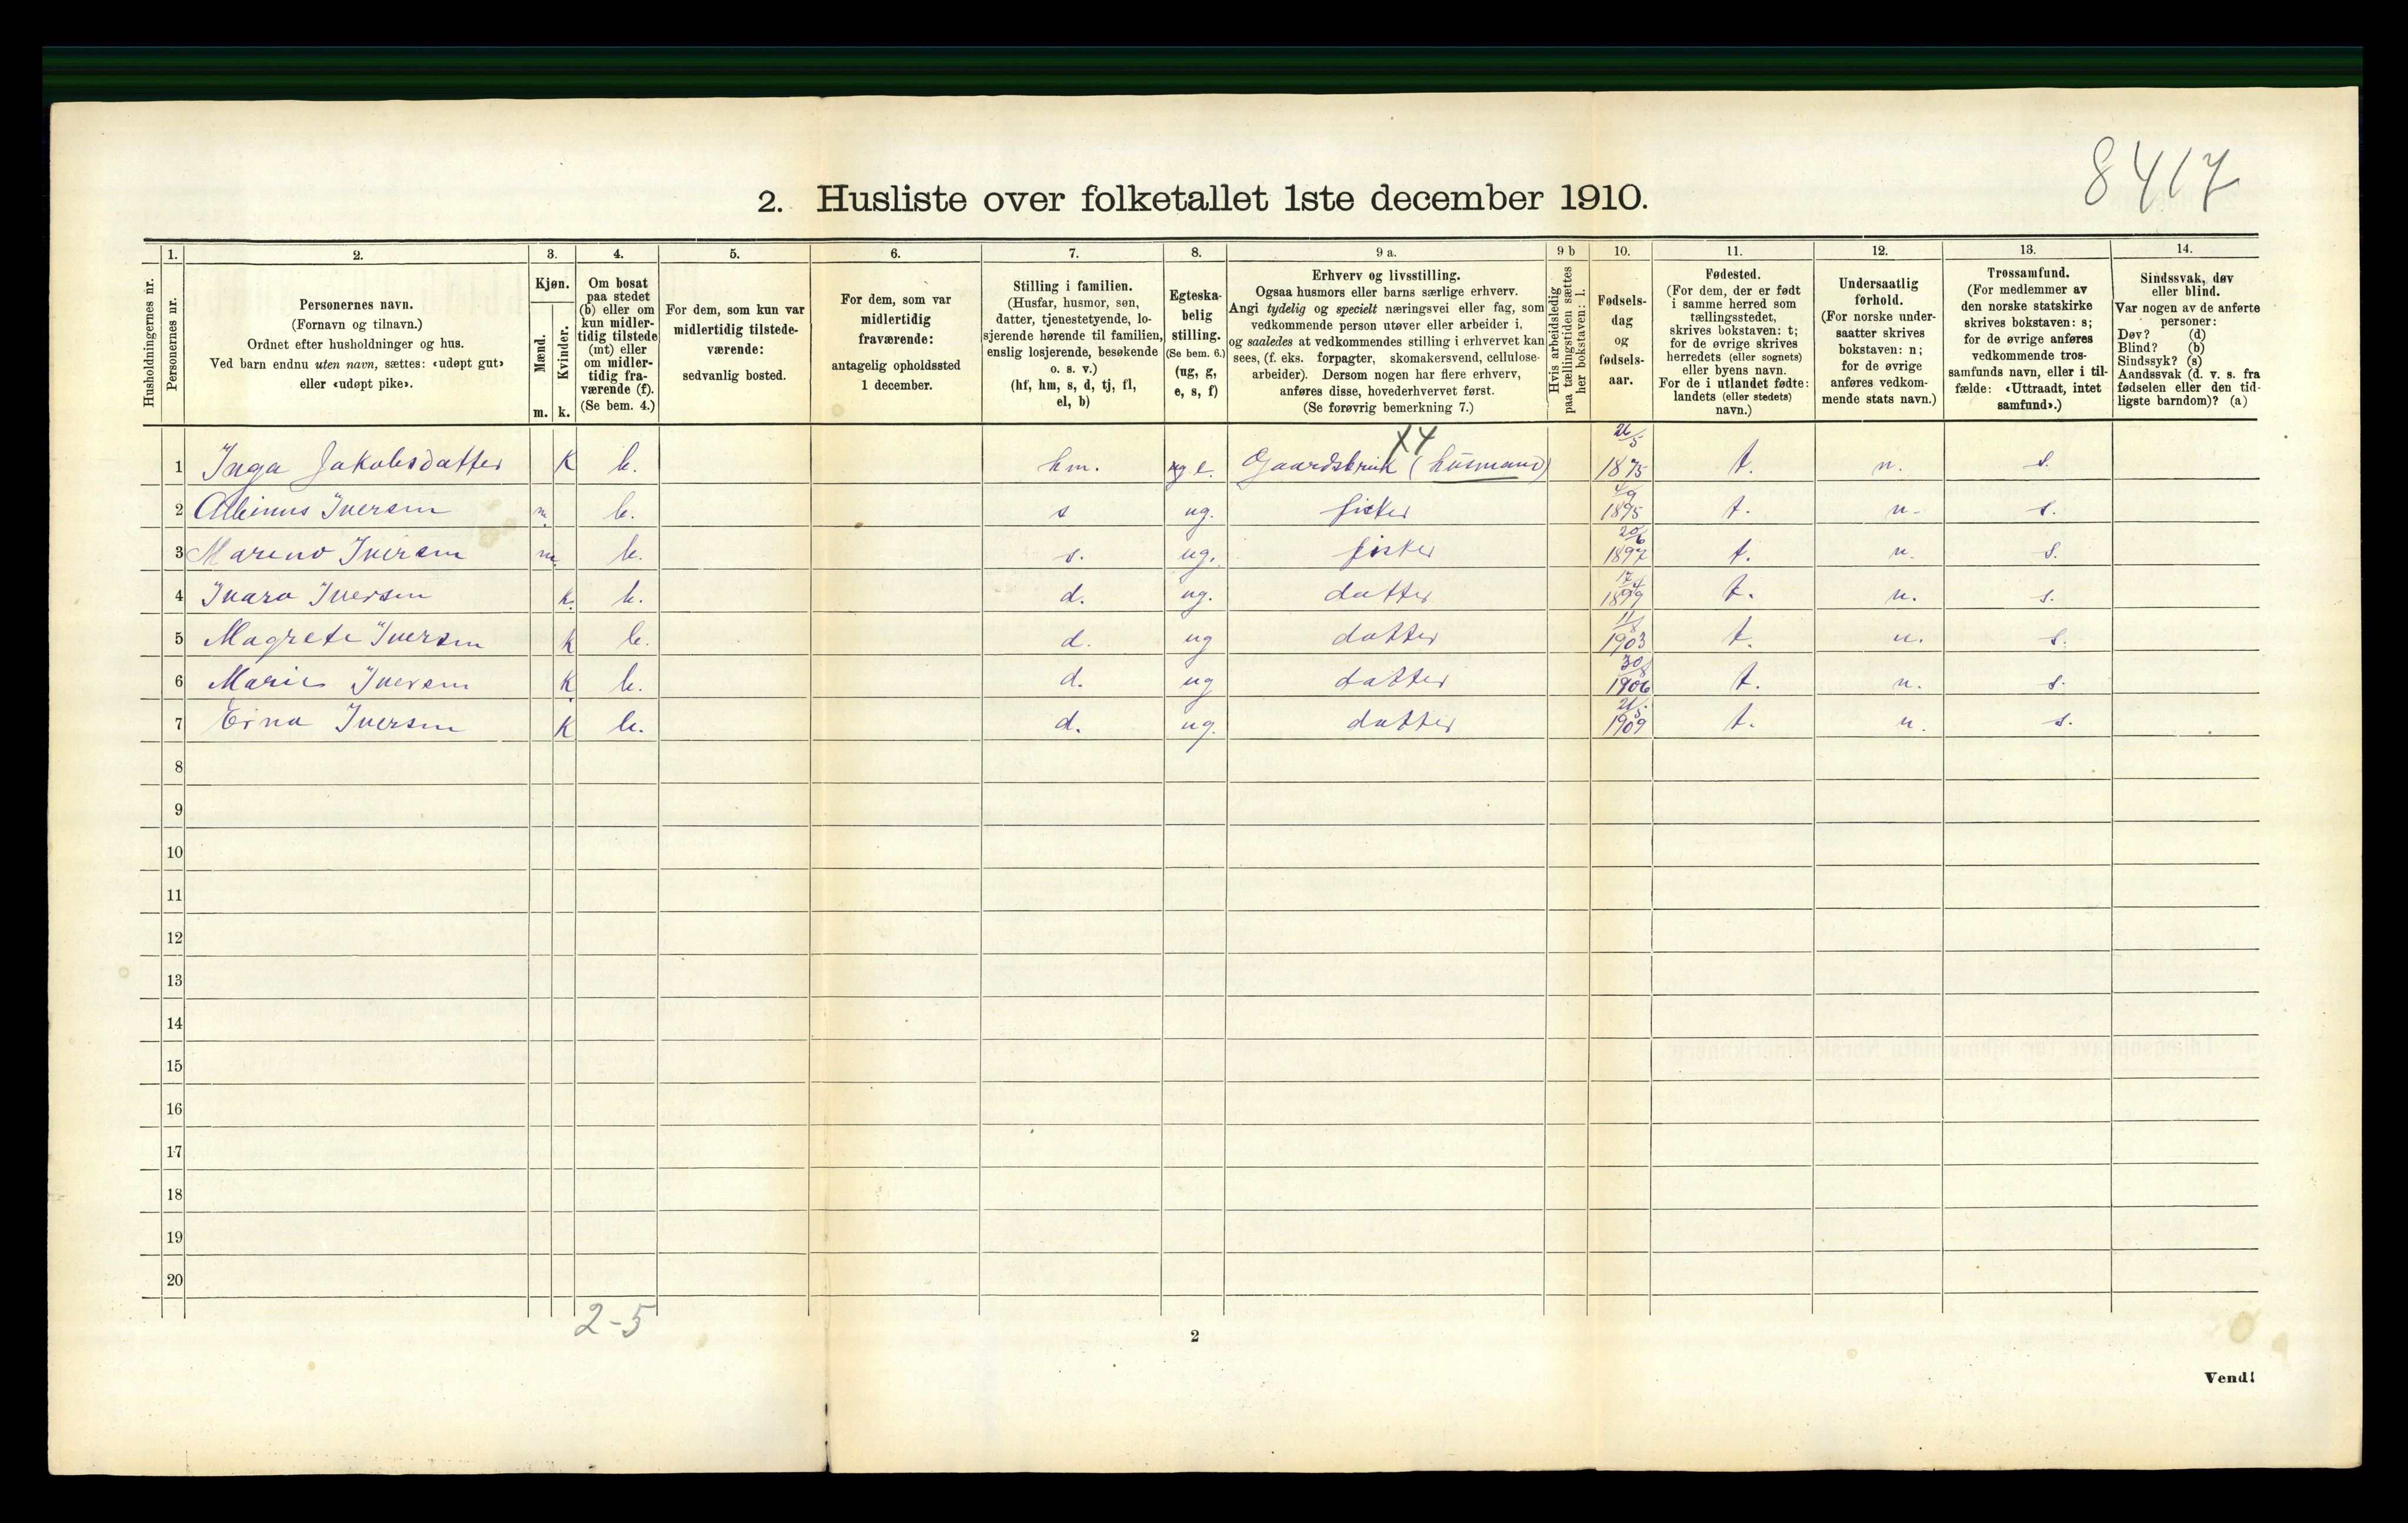 8417
2. Husliste over folketallet 1ste december 1910.
1. 2. 3. 4. 5. 6. 7. 8. 9 a. 9 b 10. 11. 12. 13. 14.
Husholdningernes nr.
Personernes nr.
Personernes navn.
(Fornavn og tilnavn.)
Ordnet efter husholdninger og hus.
Ved barn endnu uten navn, sættes: «udøpt gut»
eller «udøpt pike».
Kjøn.
Mænd.
Kvinder.
m. k.
Om bosat
paa stedet
(b) eller om
kun midler-
tidig tilstede
(mt) eller
om midler-
tidig fra-
værende (f).
(Se bem. 4.)
For dem, som kun var
midlertidig tilstede-
værende:
sedvanlig bosted.
For dem, som var
midlertidig
fraværende:
antagelig opholdssted
1 december.
Stilling i familien.
(Husfar, husmor, søn,
datter, tjenestetyende, lo-
sjerende hørende til familien,
enslig losjerende, besøkende
o. s. v.)
(hf, hm, s, d, tj, fl,
el, b)
Egteska-
belig
stilling.
(Se bem. 6.)
(ug, g,
e, s, f)
Erhverv og livsstilling.
Ogsaa husmors eller barns særlige erhverv.
Angi tydelig og specielt næringsvei eller fag, som
vedkommende person utøver eller arbeider i,
og saaledes at vedkommendes stilling i erhvervet kan
sees, (f. eks. forpagter, skomakersvend, cellulose-
arbeider). Dersom nogen har flere erhverv,
anføres disse, hovederhvervet først.
(Se forøvrig bemerkning 7.)
Hvis arbeidsledig
paa tællingstiden sættes
her bokstaven: l.
Fødsels-
dag
og
fødsels-
aar.
Fødested.
(For dem, der er født
i samme herred som
tællingsstedet,
skrives bokstaven: t;
for de øvrige skrives
herredets (eller sognets)
eller byens navn.
For de i utlandet fødte:
landets (eller stedets)
navn.)
Undersaatlig
forhold.
(For norske under-
saatter skrives
bokstaven: n;
for de øvrige
anføres vedkom-
mende stats navn.)
Trossamfund.
(For medlemmer av
den norske statskirke
skrives bokstaven: s;
for de øvrige anføres
vedkommende tros-
samfunds navn, eller i til-
fælde: «Uttraadt, intet
samfund».)
Sindssvak, døv
eller blind.
Var nogen av de anførte
personer:
Døv? (d)
Blind? (b)
Sindssyk? (s)
Aandssvak (d. v. s. fra
fødselen eller den tid-
ligste barndom)? (a)
X4
1 Inga Jakobsdatter K b. hm. e. Gaardsbruk (husmand) 1875 t. n. s.
2 Albinus Iversen m. b. s ug. fisker 4/9 1895 t. n. s.
3 Mareno Iversen m. b. s. ug. fisker 20/6 1897 t. n. s.
4 Ivara Iversen k. b. d. ug. datter 17/4 1899 t. n. s.
5 Magrete Iversen k b. d. ug datter 11/8 1903 t. n. s.
6 Marie Iversen K b. d. ug datter 30/8 1906 t. n. s.
7 Erna Iversen K b. d. ug. datter 21/5 1909 t. n. s.
8
9
10
11
12
13
14
15
16
17
18
19
20
2-5
2
Vend!